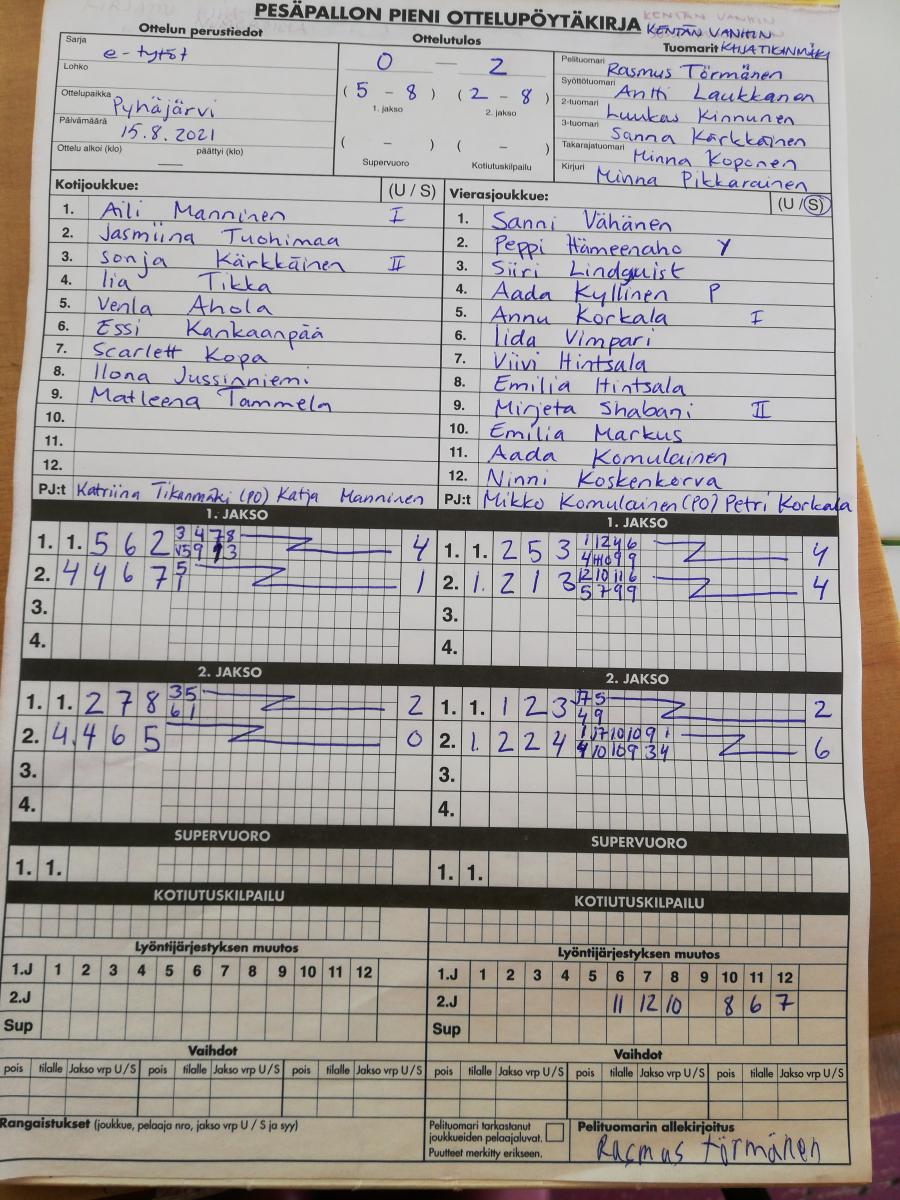 PESÄPALLON PIENI OTTELUPÖYTÄKIRJA KENTÄN VANHIN
Ottelun perustiedot
Ottelutulos
Tuomarit KATJA TIKANMÄKI
Sarja e-tytöt
Lohko
Ottelupaikka Pyhäjärvi
Päivämäärä 15.8.2021
Ottelu alkoi (klo) päättyi (klo)
0 — 2
( 5 - 8 ) ( 2 - 8 )
1. jakso 2. jakso
( - ) ( - )
Supervuoro Kotiutuskilpailu
Pelituomari Rasmus Törmänen
Syöttötuomari Antti Laukkanen
2-tuomari Luukas Kinnunen
3-tuomari Sanna Kärkkäinen
Takarajatuomari Minna Koponen
Kirjuri Minna Pikkarainen
Kotijoukkue: (U / S)
1. Aili Manninen I
2. Jasmiina Tuohimaa
3. Sonja Kärkkäinen II
4. Iia Tikka
5. Venla Ahola
6. Essi Kankaanpää
7. Scarlett Kopa
8. Ilona Jussinniemi
9. Matleena Tammela
10.
11.
12.
PJ:t Katriina Tikanmäki (PO) Katja Manninen
Vierasjoukkue: (U / S)
1. Sanni Vähänen
2. Peppi Hämeenaho Y
3. Siiri Lindquist
4. Aada Kyllinen P
5. Annu Korkala I
6. Iida Vimpari
7. Viivi Hintsala
8. Emilia Hintsala
9. Mirjeta Shabani II
10. Emilia Markus
11. Aada Komulainen
12. Ninni Koskenkorva
PJ:t Mikko Komulainen (PO) Petri Korkala
1. JAKSO
1. 1. 5 6 2 4
2. 4 4 6 7 1
3.
4.
1. JAKSO
1. 1. 2 5 3 4
2. 1. 2 1 3 4
3.
4.
2. JAKSO
1. 1. 2 7 8 3 5 2
6 1
2. 4. 4 6 5 0
3.
4.
2. JAKSO
1. 1. 1 2 3 2
4 9
2. 1. 2 2 4 6
3.
4.
SUPERVUORO
1. 1.
SUPERVUORO
1. 1.
KOTIUTUSKILPAILU
KOTIUTUSKILPAILU
Lyöntijärjestyksen muutos
1.J 1 2 3 4 5 6 7 8 9 10 11 12
2.J
Sup
Lyöntijärjestyksen muutos
1.J 1 2 3 4 5 6 7 8 9 10 11 12
2.J 11 12 10 8 6 7
Sup
Vaihdot
pois tilalle Jakso vrp U / S pois tilalle Jakso vrp U / S pois tilalle Jakso vrp U / S
Vaihdot
pois tilalle Jakso vrp U / S pois tilalle Jakso vrp U / S pois tilalle Jakso vrp U / S
Rangaistukset (joukkue, pelaaja nro, jakso vrp U / S ja syy)
Pelituomari tarkastanut
joukkueiden pelaajaluvat.
Puutteet merkitty erikseen.
Pelituomarin allekirjoitus
Rasmus Törmänen